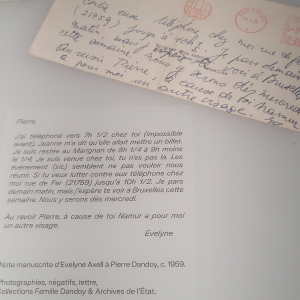 cette eux téléphone chez moi rue de fer
(21759) jusqu'à 10h½. Je pars demain
matin, mais
cette semaine. Nous y serons dès mercredi
Au revoir Pierre, à cause de toi Namur
a pour moi un autre visage.
Pierre,
J'ai téléphoné vers 7h 1/2 chez toi (impossible
avant), Jeanne m'a dit qu'elle allait mettre un billet.
Je suis restée au Marignon de 8h 1/4 à 9h moins
le 1/4. Je suis venue chez toi, tu n'es pas là. Les
événement (sic) semblent ne pas vouloir nous
réunir. Si tu veux lutter contre eux téléphone chez
moi rue de Fer (21759) jusqu'à 10h 1/2. Je pars
demain matin, mais j'espère te voir à Bruxelles cette
semaine. Nous y serons dès mercredi.
Au revoir Pierre, à cause de toi Namur a pour moi
un autre visage.
Evelyne
Note manuscrite d'Evelyne Axell à Pierre Dandoy, c. 1959.
Photographies, négatifs, lettre,
Collections Famille Dandoy & Archives de l'État.